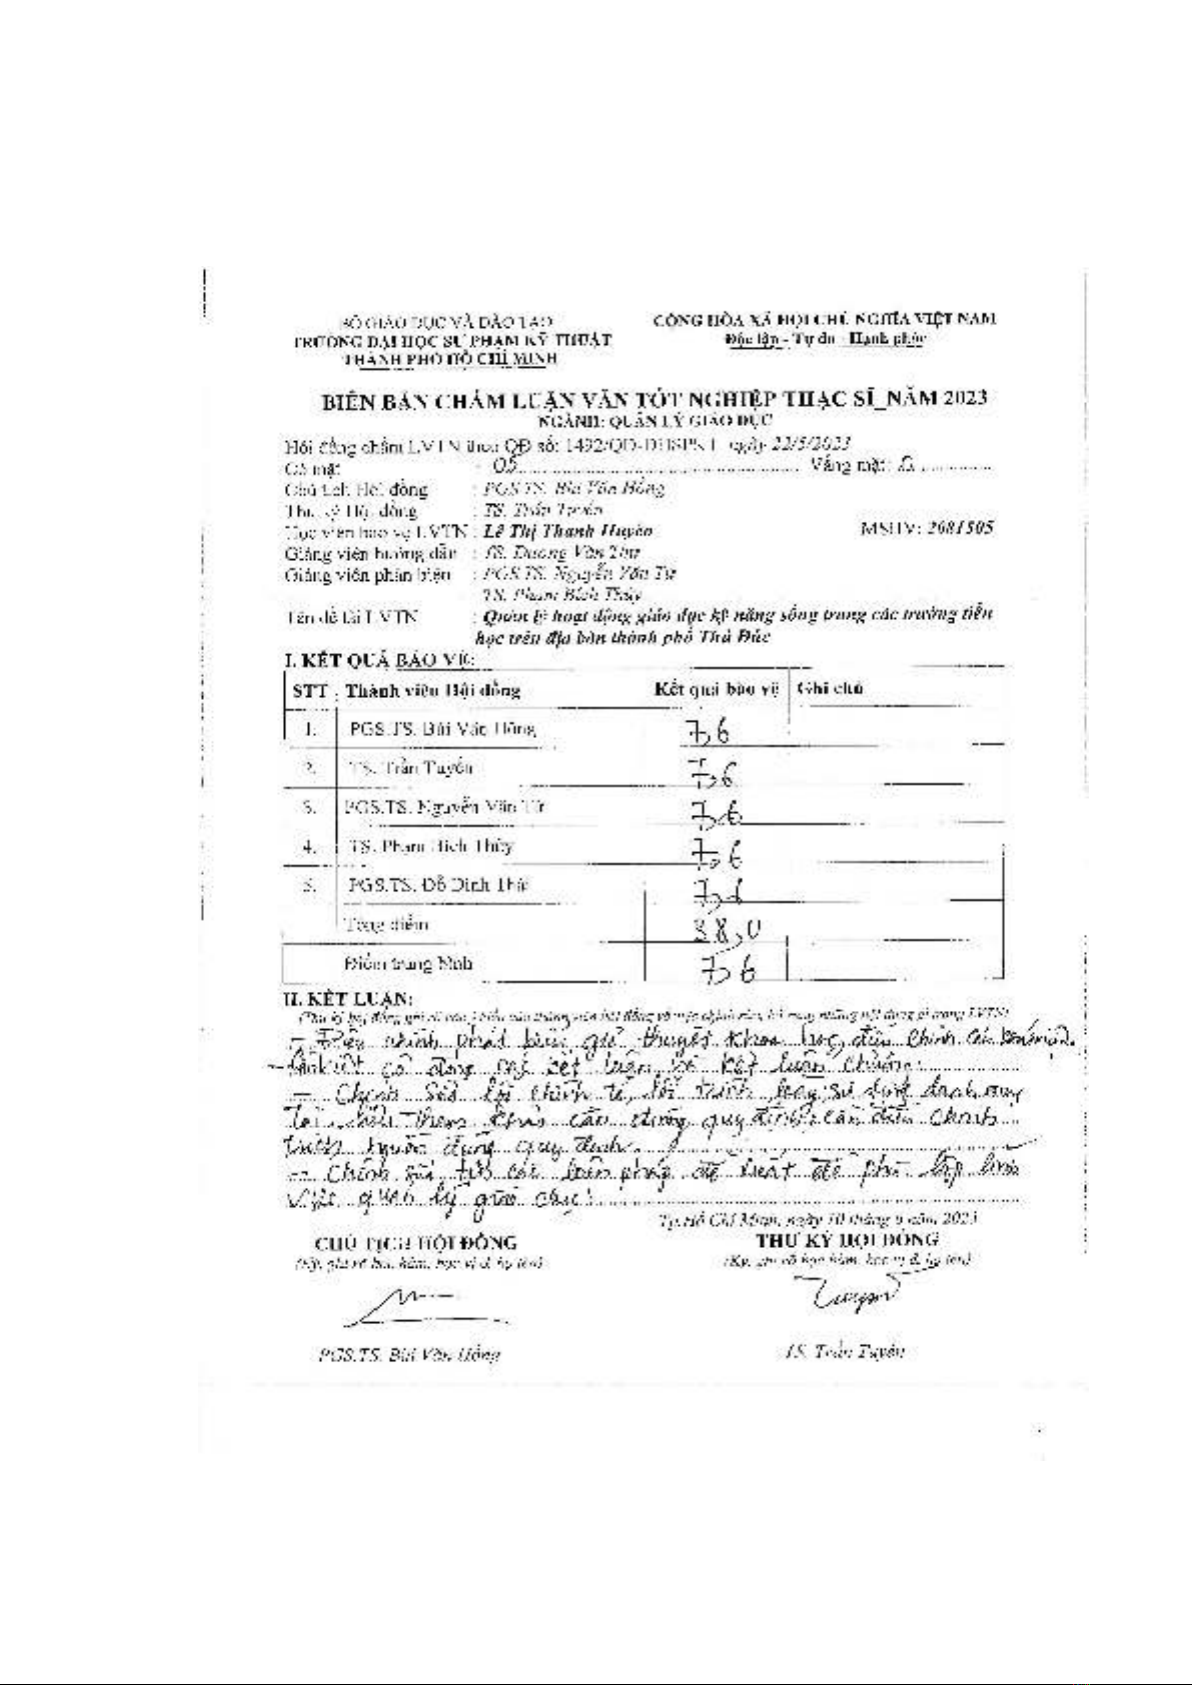 BỘ GIÁO DỤC VÀ ĐÀO TẠO
TRƯỜNG ĐẠI HỌC SƯ PHẠM KỸ THUẬT
THÀNH PHỐ HỒ CHÍ MINH
CỘNG HÒA XÃ HỘI CHỦ NGHĨA VIỆT NAM
Độc lập - Tự do - Hạnh phúc
BIÊN BẢN CHẤM LUẬN VĂN TỐT NGHIỆP THẠC SĨ_NĂM 2023
NGÀNH: QUẢN LÝ GIÁO DỤC
Hội đồng chấm LVTN theo QĐ số: 1492/QĐ-ĐHSPKT ngày 22/5/2023
Có mặt : 05 Vắng mặt:
Chủ tịch Hội đồng : PGS.TS. Bùi Văn Hồng
Thư ký Hội đồng : TS. Trần Tuyến
Học viên bảo vệ LVTN : Lê Thị Thanh Huyền MSHV: 2081505
Giảng viên hướng dẫn : TS. Dương Văn Thư
Giảng viên phản biện : PGS.TS. Nguyễn Văn Tứ
TS. Phạm Bích Thủy
Tên đề tài LVTN : Quản lý hoạt động giáo dục kỹ năng sống trong các trường tiểu
học trên địa bàn thành phố Thủ Đức
I. KẾT QUẢ BẢO VỆ:
STT Thành viên Hội đồng Kết quả bảo vệ Ghi chú
1. PGS.TS. Bùi Văn Hồng 7,6
2. TS. Trần Tuyến 7,6
3. PGS.TS. Nguyễn Văn Tứ 7,6
4. TS. Phạm Bích Thủy 7,6
5. PGS.TS. Đỗ Đình Thái 7,6
Tổng điểm 38,0
Điểm trung bình 7,6
II. KẾT LUẬN:
giả thuyết khoa học, điều chỉnh
kết luận chương.
- Chỉnh sửa lỗi chính tả, lỗi trình bày; sử dụng danh mục
Tài liệu tham khảo cần đúng quy định; cần điều chỉnh
trích nguồn đúng quy định.
- Chỉnh sửa đề xuất để phù hợp lĩnh
vực quản lý giáo dục.
Tp.Hồ Chí Minh, ngày 10 tháng 6 năm 2023
CHỦ TỊCH HỘI ĐỒNG
THƯ KÝ HỘI ĐỒNG
(Ký, ghi rõ học hàm, học vị & họ tên)
(Ký, ghi rõ học hàm, học vị & họ tên)
PGS.TS. Bùi Văn Hồng
TS. Trần Tuyến